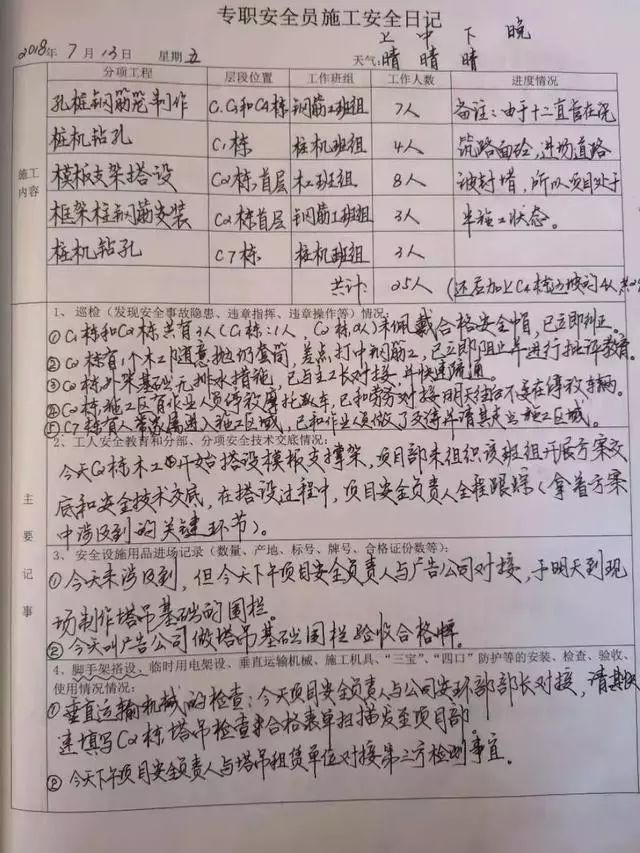 专职安全员施工安全日记
上 中 下 晚
2018年 7月 13日 星期五 天气: 晴 晴 晴
分项工程 层段位置 工作班组 工作人数 进度情况
施工内容
孔桩钢筋笼制作 钢筋工班组 7人 备注:由于十二直管在浇
桩机钻孔 C1栋 桩机班组 4人 筑路面砼,进场道路
模板支架搭设 C2栋首层 木工班组 8人 被封堵,所以项目处于
框架柱钢筋安装 C2栋首层 钢筋工班组 3人 半施工状态。
桩机钻孔 C7栋 桩机班组 3人
共计: 25人
主要记事
1、巡检(发现安全事故隐患、违章指挥、违章操作等)情况:
①C1栋和C2栋共有3人(C1栋:1人,C2栋2人)未佩戴合格安全帽,已立即纠正。
②C2栋有1个木工随意抛扔套筒,差点打中钢筋工,已立即阻止并进行批评教育。
③C2栋外架基础无排水措施,已与主工长对接,并快速疏通。
④C2栋施工区有作业人员停放摩托车,已和劳务对接明天往后不要在停放车辆。
⑤C7栋有人带家属进入施工区域,已和作业人员做了交待并请其走出施工区域。
2、工人安全教育和分部、分项安全技术交底情况:
今天C2栋木工开始搭设模板支撑架,项目部未组织该班组开展方案交
底和安全技术交底,在搭设过程中,项目安全负责人全程跟踪(拿着方案
中涉及到的关键环节)。
3、安全设施用品进场记录(数量、产地、标号、牌号、合格证份数等):
①今天未涉及到,但今天下午项目安全负责人与广告公司对接,于明天到现
场制作塔吊基础的围栏。
②今天叫广告公司做塔吊基础围栏验收合格牌。
4、脚手架搭设、临时用电架设、垂直运输机械、施工机具、“三宝”、“四口”防护等的安装、检查、验收、
使用情况情况:
①垂直运输机械的检查:今天项目安全负责人与公司安环部部长对接,请其快
速填写C2栋塔吊检查合格表单扫描发至项目部。
②今天下午项目安全负责人与塔吊租赁单位对接第三方检测事宜。